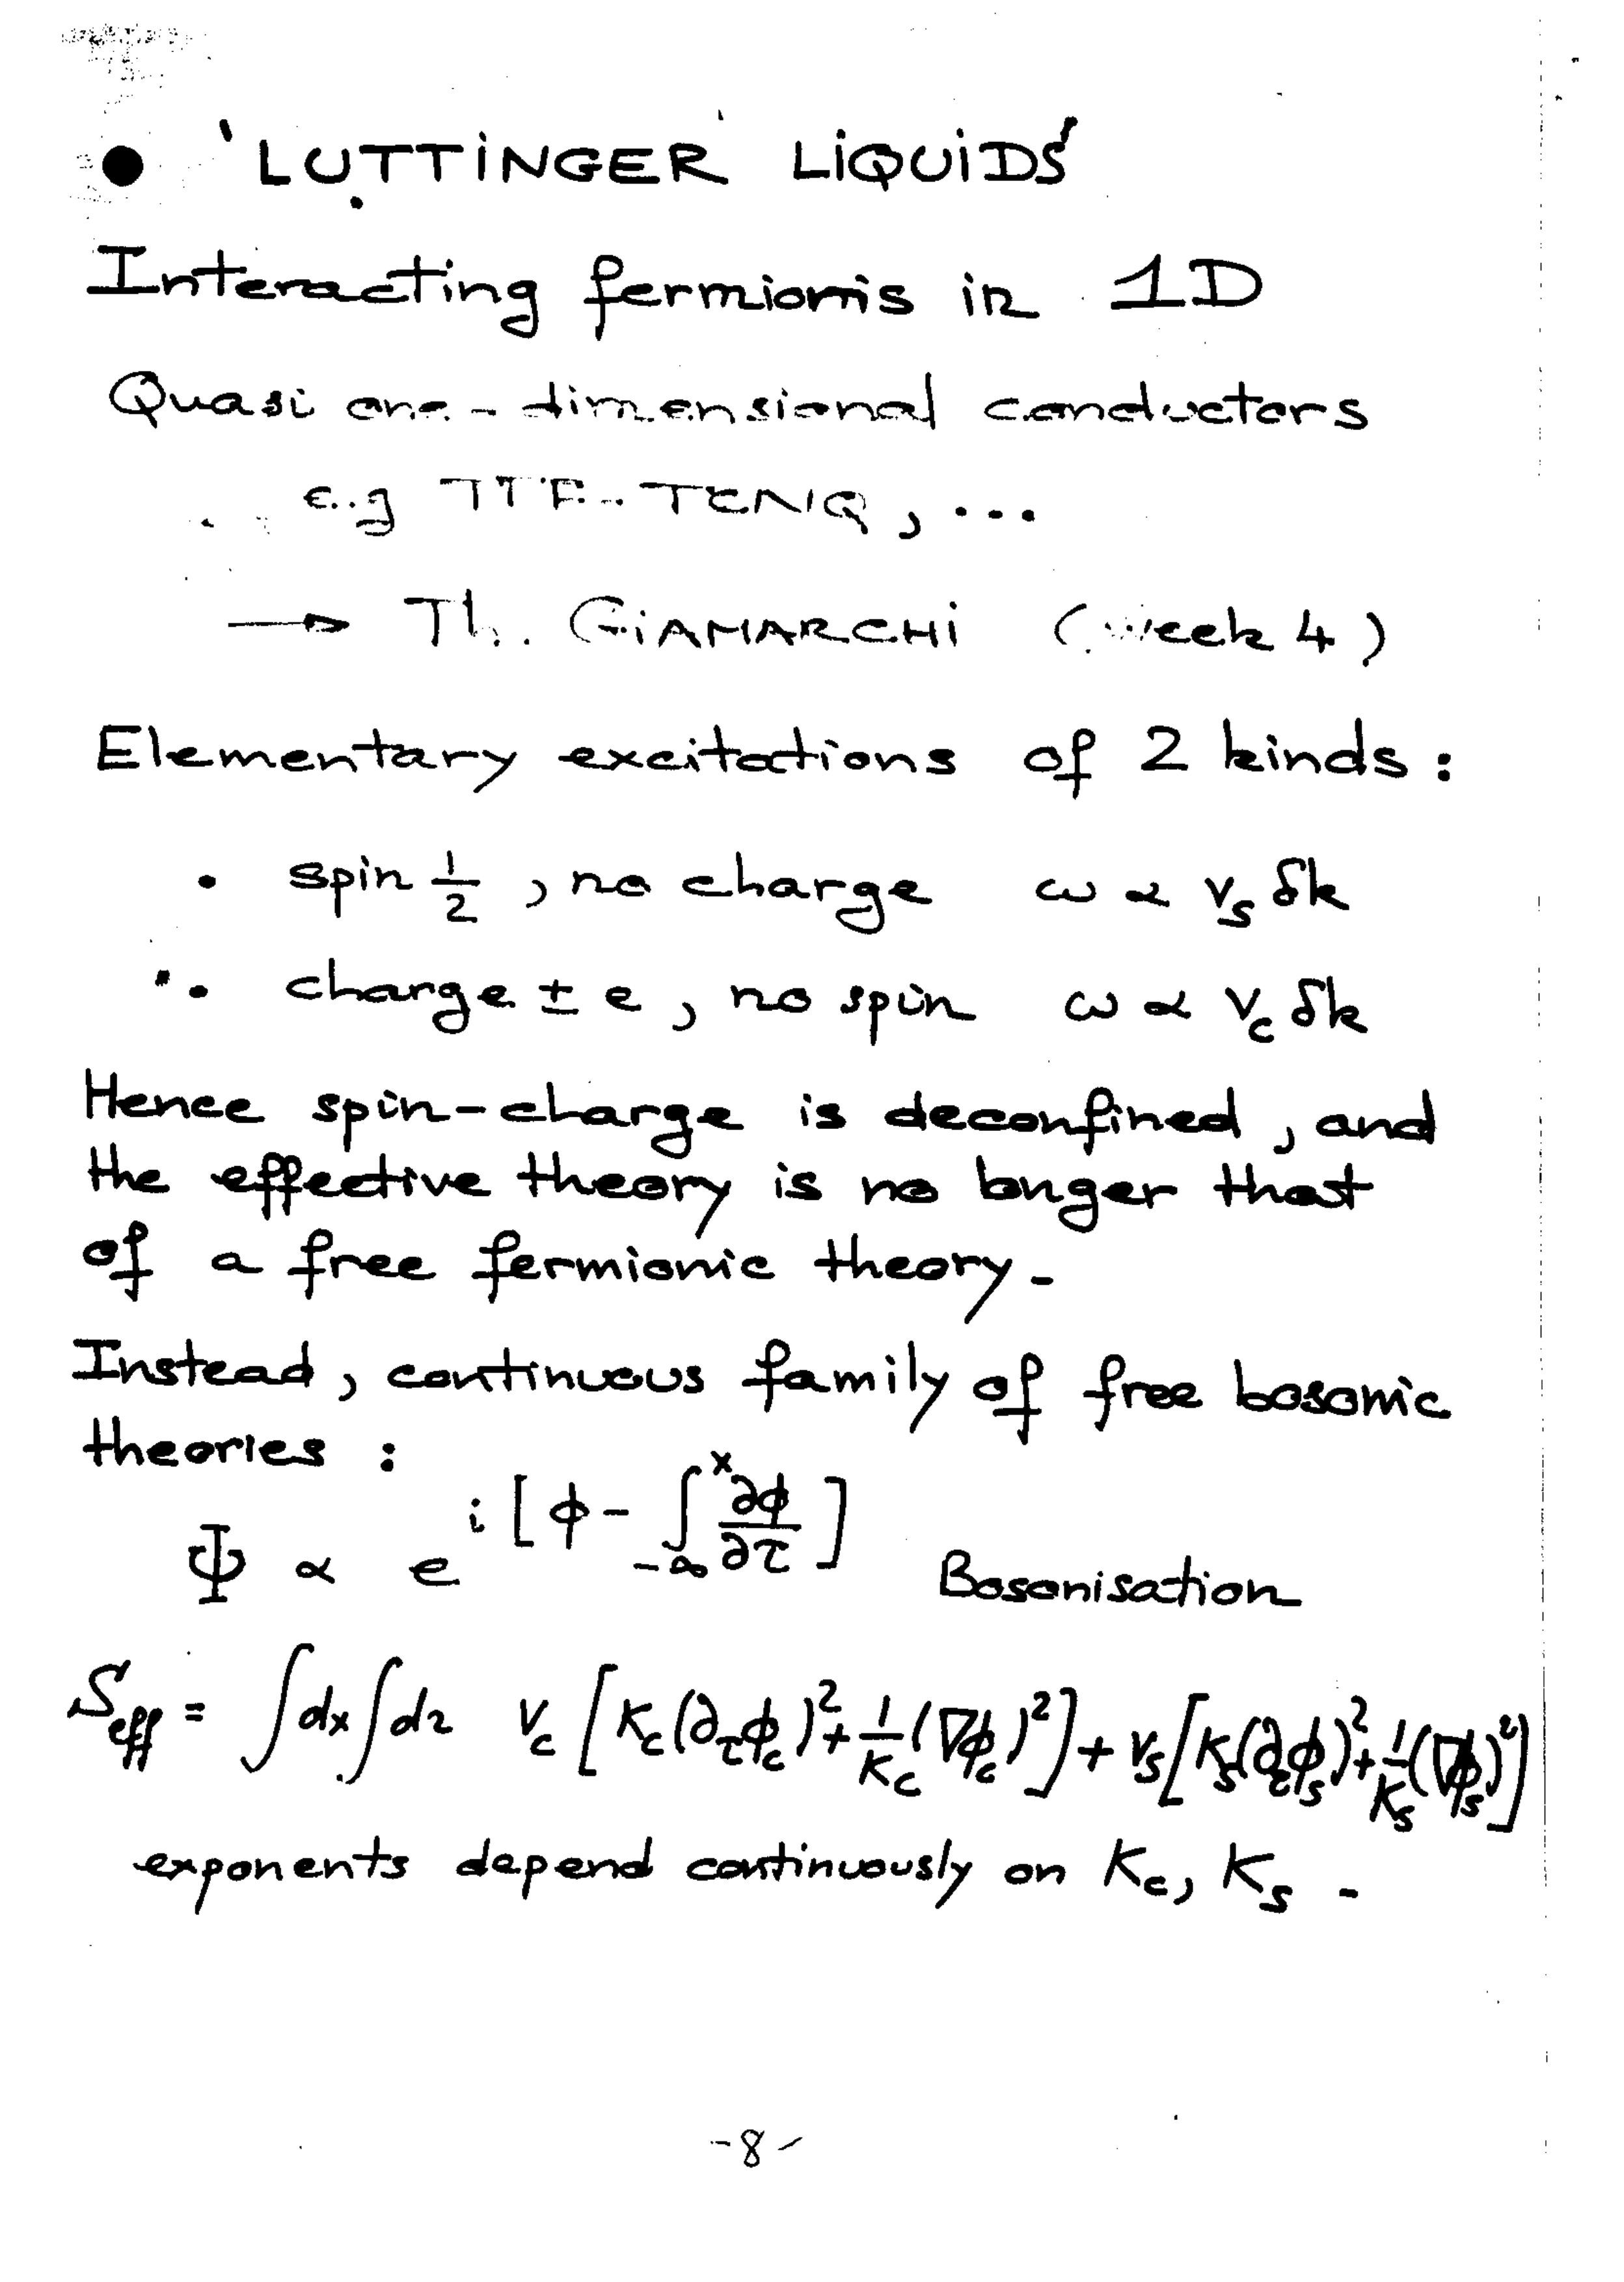 ● 'LUTTINGER LIQUIDS'
Interacting fermions in 1D
Quasi one-dimensional conductors
e.g TTF-TCNQ, ...
→ Th. GIAMARCHI (week 4)
Elementary excitations of 2 kinds :
• spin 1/2 , no charge ω ∝ v_s δk
• charge ± e , no spin ω ∝ v_c δk
Hence spin-charge is deconfined, and
the effective theory is no longer that
of a free fermionic theory -
Instead, continuous family of free bosonic
theories :
Ψ ∝ e^{i[ϕ - ∫_{-∞}^{x} ∂ϕ/∂τ]} Bosonisation
S_eff = ∫dx∫dτ v_c [K_c(∂_τϕ_c)² + 1/K_c (∇ϕ_c)²] + v_s[K_s(∂_τϕ_s)² + 1/K_s (∇ϕ_s)²]
exponents depend continuously on K_c, K_s -
-8-